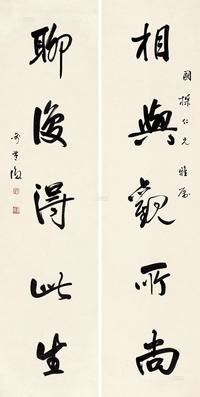 相與觀所尚
國 仁兄 雅屬
聊復得此生